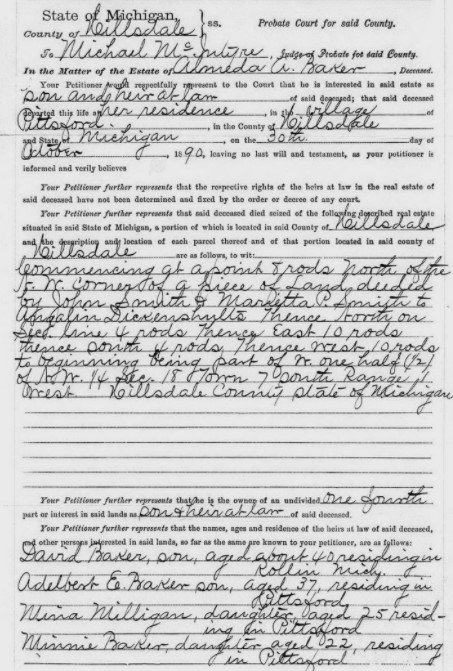 State of Michigan,
County of Hillsdale
ss.
Probate Court for said County.
To Michael McIntyre, Judge of Probate for said County.
In the Matter of the Estate of Almeda A. Baker, Deceased.
Your Petitioner would respectfully represent to the Court that he is interested in said estate as
son and heir at law of said deceased; that said deceased
departed this life at her residence, in the village of
Pittsford, in the County of Hillsdale
and State of Michigan, on the 30th day of
October, 1890, leaving no last will and testament, as your petitioner is
informed and verily believes
Your Petitioner further represents that the respective rights of the heirs at law in the real estate of
said deceased have not been determined and fixed by the order or decree of any court.
Your Petitioner further represents that said deceased died seized of the following described real estate
situated in said State of Michigan, a portion of which is located in said County of Hillsdale
and the description and location of each parcel thereof and of that portion located in said county of
Hillsdale are as follows, to wit:
Commencing at a point 8 rods North of the
N. W. Corner of a piece of Land, deeded
by John Smith & Marietta P. Smith to
Angalin Dickenshults thence North on
Sec. line 4 rods thence East 10 rods
thence South 4 rods, thence West 10 rods
to beginning being part of W. one half (1/2)
of N.W. 1/4 Sec. 18 Town 7 South Range 1
West Hillsdale County State of Michigan
Your Petitioner further represents that he is the owner of an undivided one fourth
part or interest in said lands as son & heir at law of said deceased.
Your Petitioner further represents that the names, ages and residence of the heirs at law of said deceased,
and other persons interested in said lands, so far as the same are known to your petitioner, are as follows:
David Baker, son, aged about 40 residing in
Rollin Mich.
Adelbert E. Baker son, aged 37, residing in
Pittsford
Mina Milligan, daughter, aged 25 resid-
ing in Pittsford
Minnie Baker, daughter aged 22, residing
in Pittsford